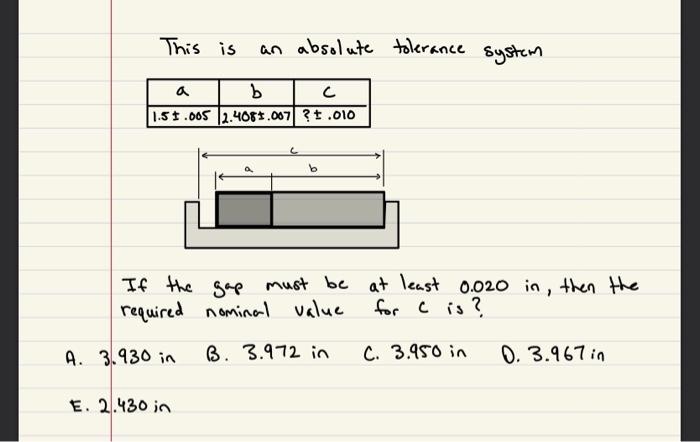 This is an absolute tolerance system
a b c
1.5±.005 2.408±.007 ?±.010
c
a b
If the gap must be at least 0.020 in, then the
required nominal value for c is?
A. 3.930 in B. 3.972 in C. 3.950 in D. 3.967 in
E. 2.430 in